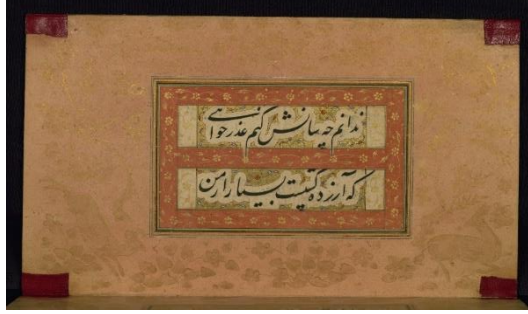 ندانم چه سانش کنم عذر خواهی
که آزرده گشتست بسیار از من